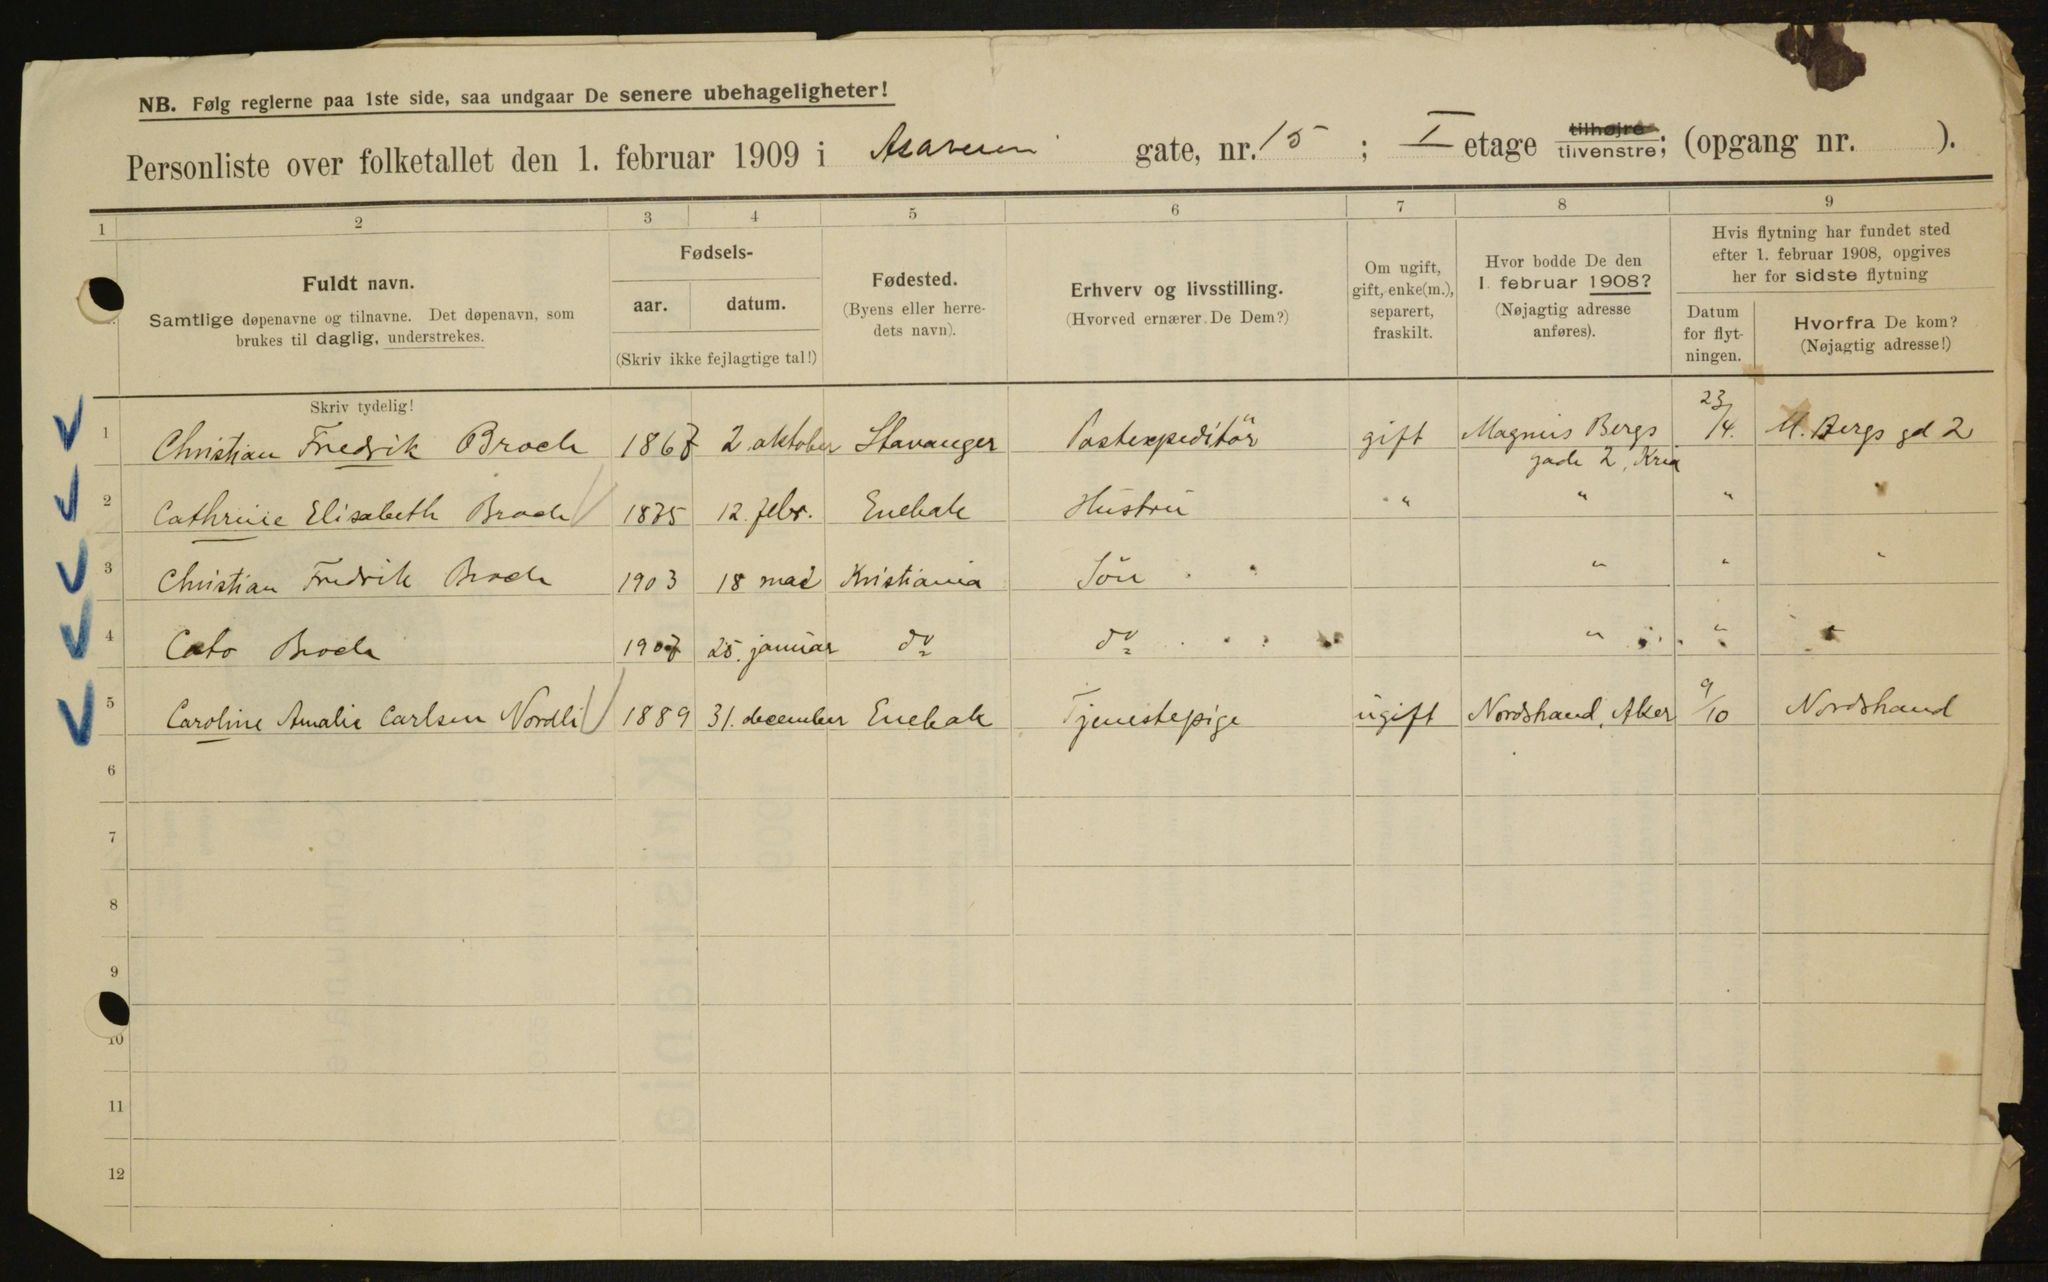 NB. Følg reglerne paa 1ste side, saa undgaar De senere ubehageligheter!
Personliste over folketallet den 1. februar 1909 i Asaveien gate, nr. 15 ; I etage tilhøjre tilvenstre; (opgang nr. ).
1 2 3 4 5 6 7 8 9
Fuldt navn.
Samtlige døpenavne og tilnavne. Det døpenavn, som
brukes til daglig, understrekes.
Fødsels-
aar. datum.
(Skriv ikke fejlagtige tal!)
Fødested.
(Byens eller herre-
dets navn).
Erhverv og livsstilling.
(Hvorved ernærer De Dem?)
Om ugift,
gift, enke(m.),
separert,
fraskilt.
Hvor bodde De den
1. februar 1908?
(Nøjagtig adresse
anføres).
Hvis flytning har fundet sted
efter 1. februar 1908, opgives
her for sidste flytning
Datum
for flyt-
ningen.
Hvorfra De kom?
(Nøjagtig adresse!)
Skriv tydelig!
1 Christian Fredrik Broch 1867 2 oktober Stavanger Postexpeditör gift Magnus Bergs gade 2, Kria 23/4. M. Bergs gd 2
2 Cathrine Elisabeth Broch 1875 12. febr. Enebak Hustru " " " "
3 Christian Fredrik Broch 1903 18 mai Kristiania Sön " " "
4 Cato Broch 1907 25. januar do do " " "
5 Caroline Amalie Carlsen Nordli 1889 31. december Enebak Tjenestepige ugift Nordstrand, Aker 9/10 Nordstrand
6
7
8
9
10
11
12